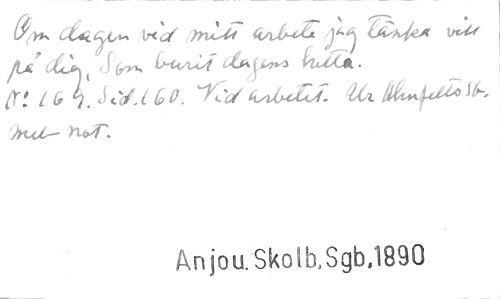 Om dagen vid mitt arbete jag tänka vill
på dig, Som burit dagens hetta.
No: 169. Sid. 160. Vid arbetet. Ur Ahnfelts Sb.
med not.
Anjou. Skolb, Sgb, 1890